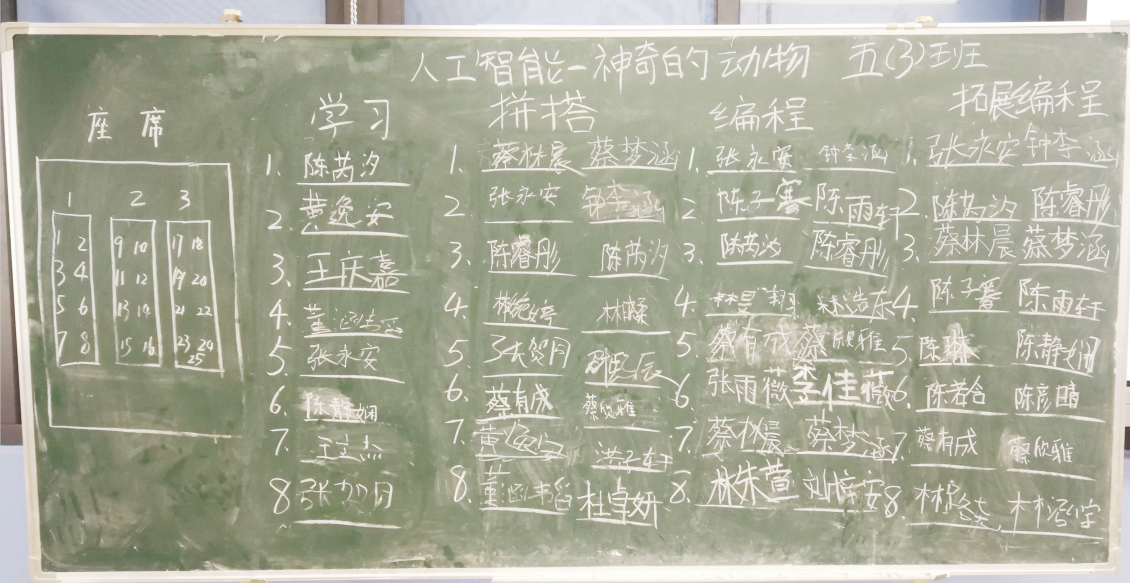 人工智能-神奇的动物 五(3)班
座席 学习 拼搭 编程 拓展编程
1. 陈芮汐 1. 蔡林晨 蔡梦涵 1. 张永安 钟李涵 1. 张永安 钟李涵
2. 黄逸安 2. 张永安 钟李涵 2. 陈子骞 陈雨轩 2. 陈芮汐 陈睿彤
3. 王庆嘉 3. 陈睿彤 陈芮汐 3. 陈芮汐 陈睿彤 3. 蔡林晨 蔡梦涵
4. 董涵 4. 林 4. 林 4. 陈子骞 陈雨轩
5. 张永安 5. 张贺月 5. 蔡有成 蔡欣雅 5. 陈 陈静娴
6. 陈静娴 6. 蔡有成 蔡欣雅 6. 张雨薇 李佳薇 6. 陈若含 陈彦晴
7. 王 7. 黄 洪子轩 7. 蔡林晨 蔡梦涵 7. 蔡有成 蔡欣雅
8. 张贺月 8. 董涵 杜卓妍 8. 林朱萱 刘 安 8. 林 林
1 2 3
1 2 9 10 17 18
3 4 11 12 19 20
5 6 13 14 21 22
7 8 15 16 23 24
25